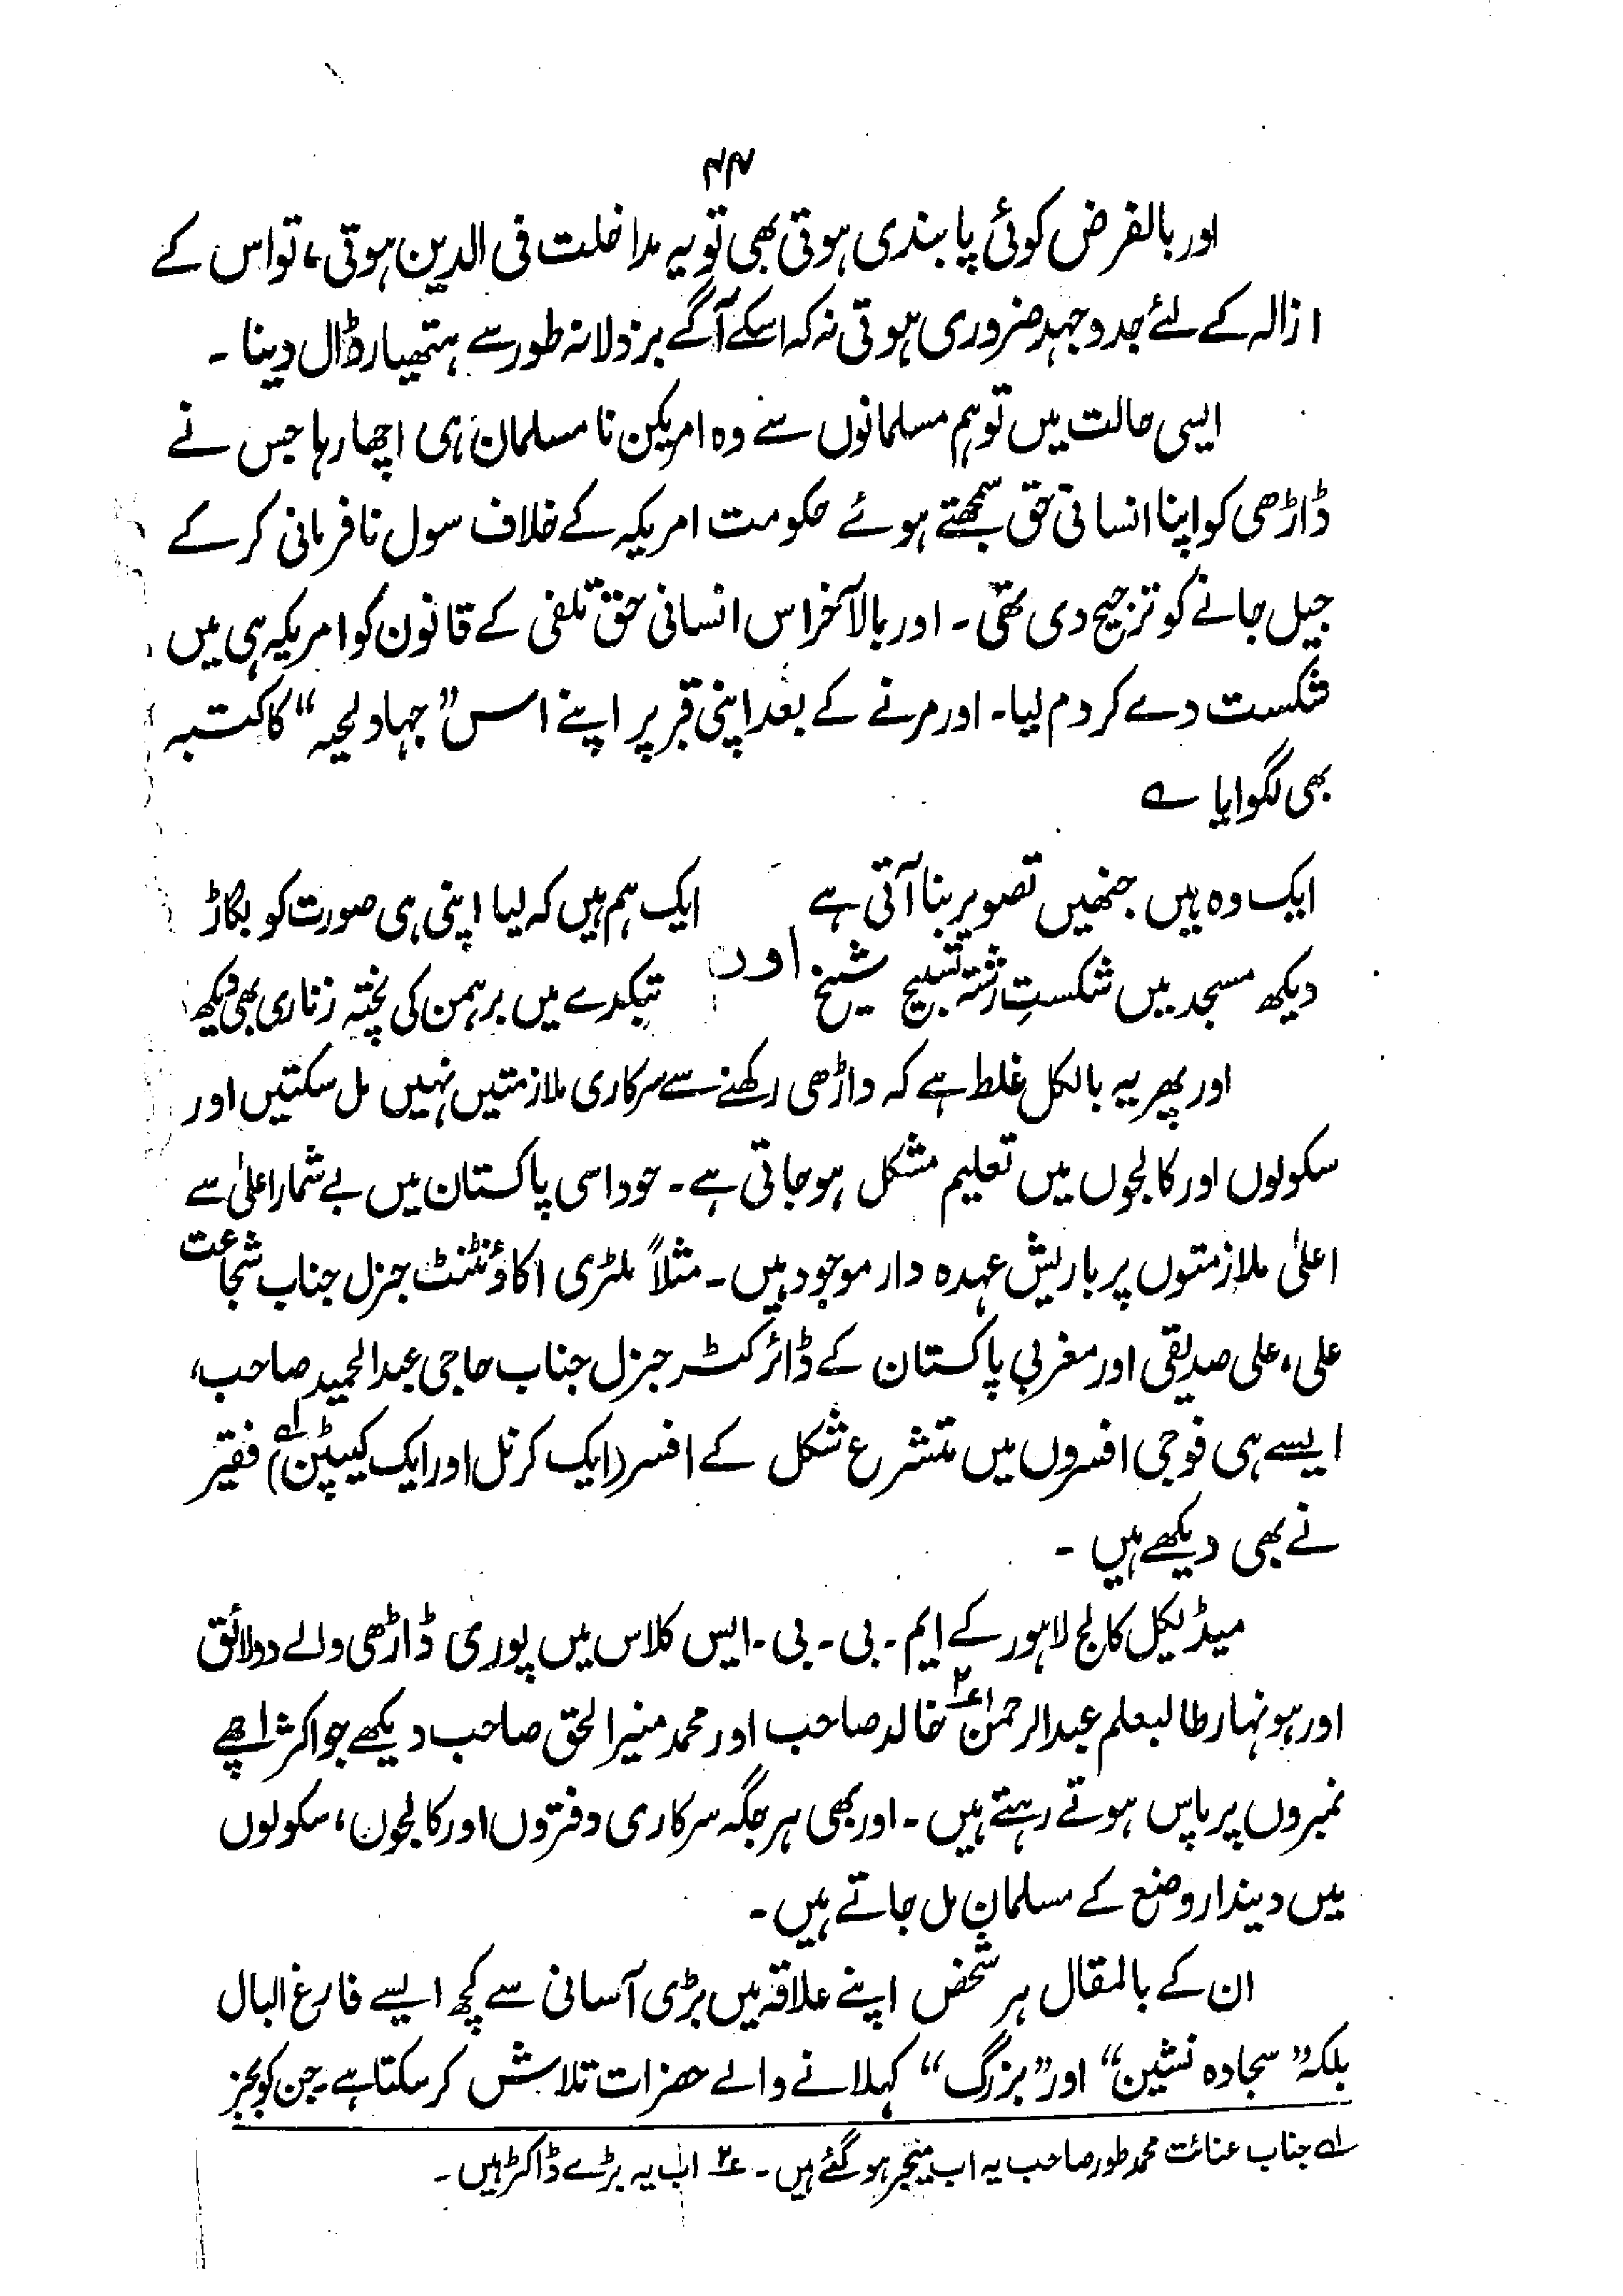 ۴۴
اور بالفرض کوئی پابندی ہوتی بھی تو یہ مداخلت فی الدین ہوتی، تو اس کے
ازالہ کے لئے جدوجہد ضروری ہوتی نہ کہ اسکے آگے بزدلانہ طور سے ہتھیار ڈال دینا ۔
ایسی حالت میں تو ہم مسلمانوں سے وہ امریکن نا مسلمان ہی اچھا رہا جس نے
ڈاڑھی کو اپنا انسانی حق سمجھتے ہوئے حکومت امریکہ کے خلاف سول نافرمانی کر کے
جیل جانے کو ترجیح دی تھی ۔ اور بالآخر اس انسانی حق تلفی کے قانون کو امریکہ ہی میں
شکست دے کر دم لیا۔ اور مرنے کے بعد اپنی قبر پر اپنے اس ”جہاد لحیہ“ کا کتبہ
بھی لگوایا ؎
ایک وہ ہیں جنھیں تصویر بنا آتی ہے ایک ہم ہیں کہ لیا اپنی ہی صورت کو بگاڑ
دیکھ مسجد میں شکستِ رشتہ تسبیح شیخ اور بتکدے میں برہمن کی پختہ زناری بھی دیکھ
اور پھر یہ بالکل غلط ہے کہ داڑھی رکھنے سے سرکاری ملازمتیں نہیں مل سکتیں اور
سکولوں اور کالجوں میں تعلیم مشکل ہو جاتی ہے ۔ خود اسی پاکستان میں بے شمار اعلیٰ سے
اعلیٰ ملازمتوں پر باریش عہدہ دار موجود ہیں ۔ مثلاً ملٹری اکاؤنٹنٹ جنرل جناب شجاعت
علی، علی صدیقی اور مغربی پاکستان کے ڈائرکٹر جنرل جناب حاجی عبدالحمید صاحب،
ایسے ہی فوجی افسروں میں متشرع شکل کے افسر (ایک کرنل اور ایک کیپٹن ؁۱) فقیر
نے بھی دیکھے ہیں ۔
میڈیکل کالج لاہور کے ایم ۔ بی ۔ بی ۔ ایس کلاس میں پوری ڈاڑھی والے دو لائق
اور ہونہار طالبعلم عبدالرحمٰن ؁۲ خالد صاحب اور محمد منیر الحق صاحب دیکھے جو اکثر اچھے
نمبروں پر پاس ہوتے رہتے ہیں ۔ اور بھی ہر جگہ سرکاری دفتروں اور کالجوں، سکولوں
میں دیندار وضع کے مسلمان مل جاتے ہیں ۔
ان کے بالمقال ہر شخص اپنے علاقہ میں بڑی آسانی سے کچھ ایسے فارغ البال
بلکہ ”سجادہ نشین“ اور ”بزرگ“ کہلانے والے حضرات تلاش کر سکتا ہے۔ جن کو بجز
؁۱ جناب عنائت محمد طور صاحب یہ اب میجر ہو گئے ہیں ۔ ؁۲ اب یہ بڑے ڈاکٹر ہیں ۔